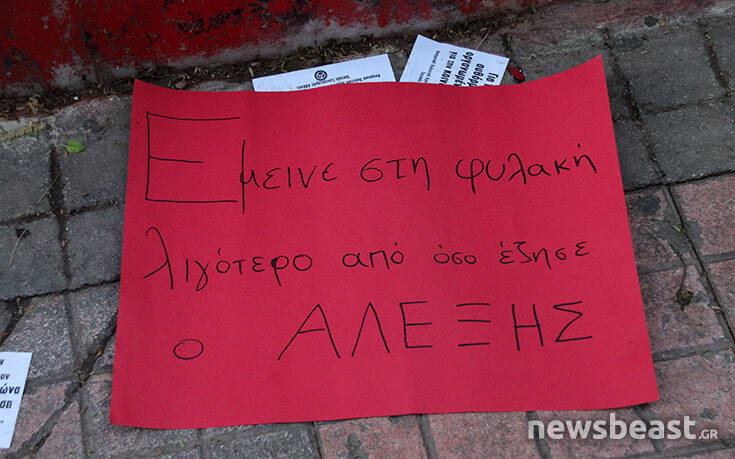 Εμεινε στη φυλακή
λιγότερο από όσο έζησε
ο ΑΛΕΞΗΣ
newsbeast.GR